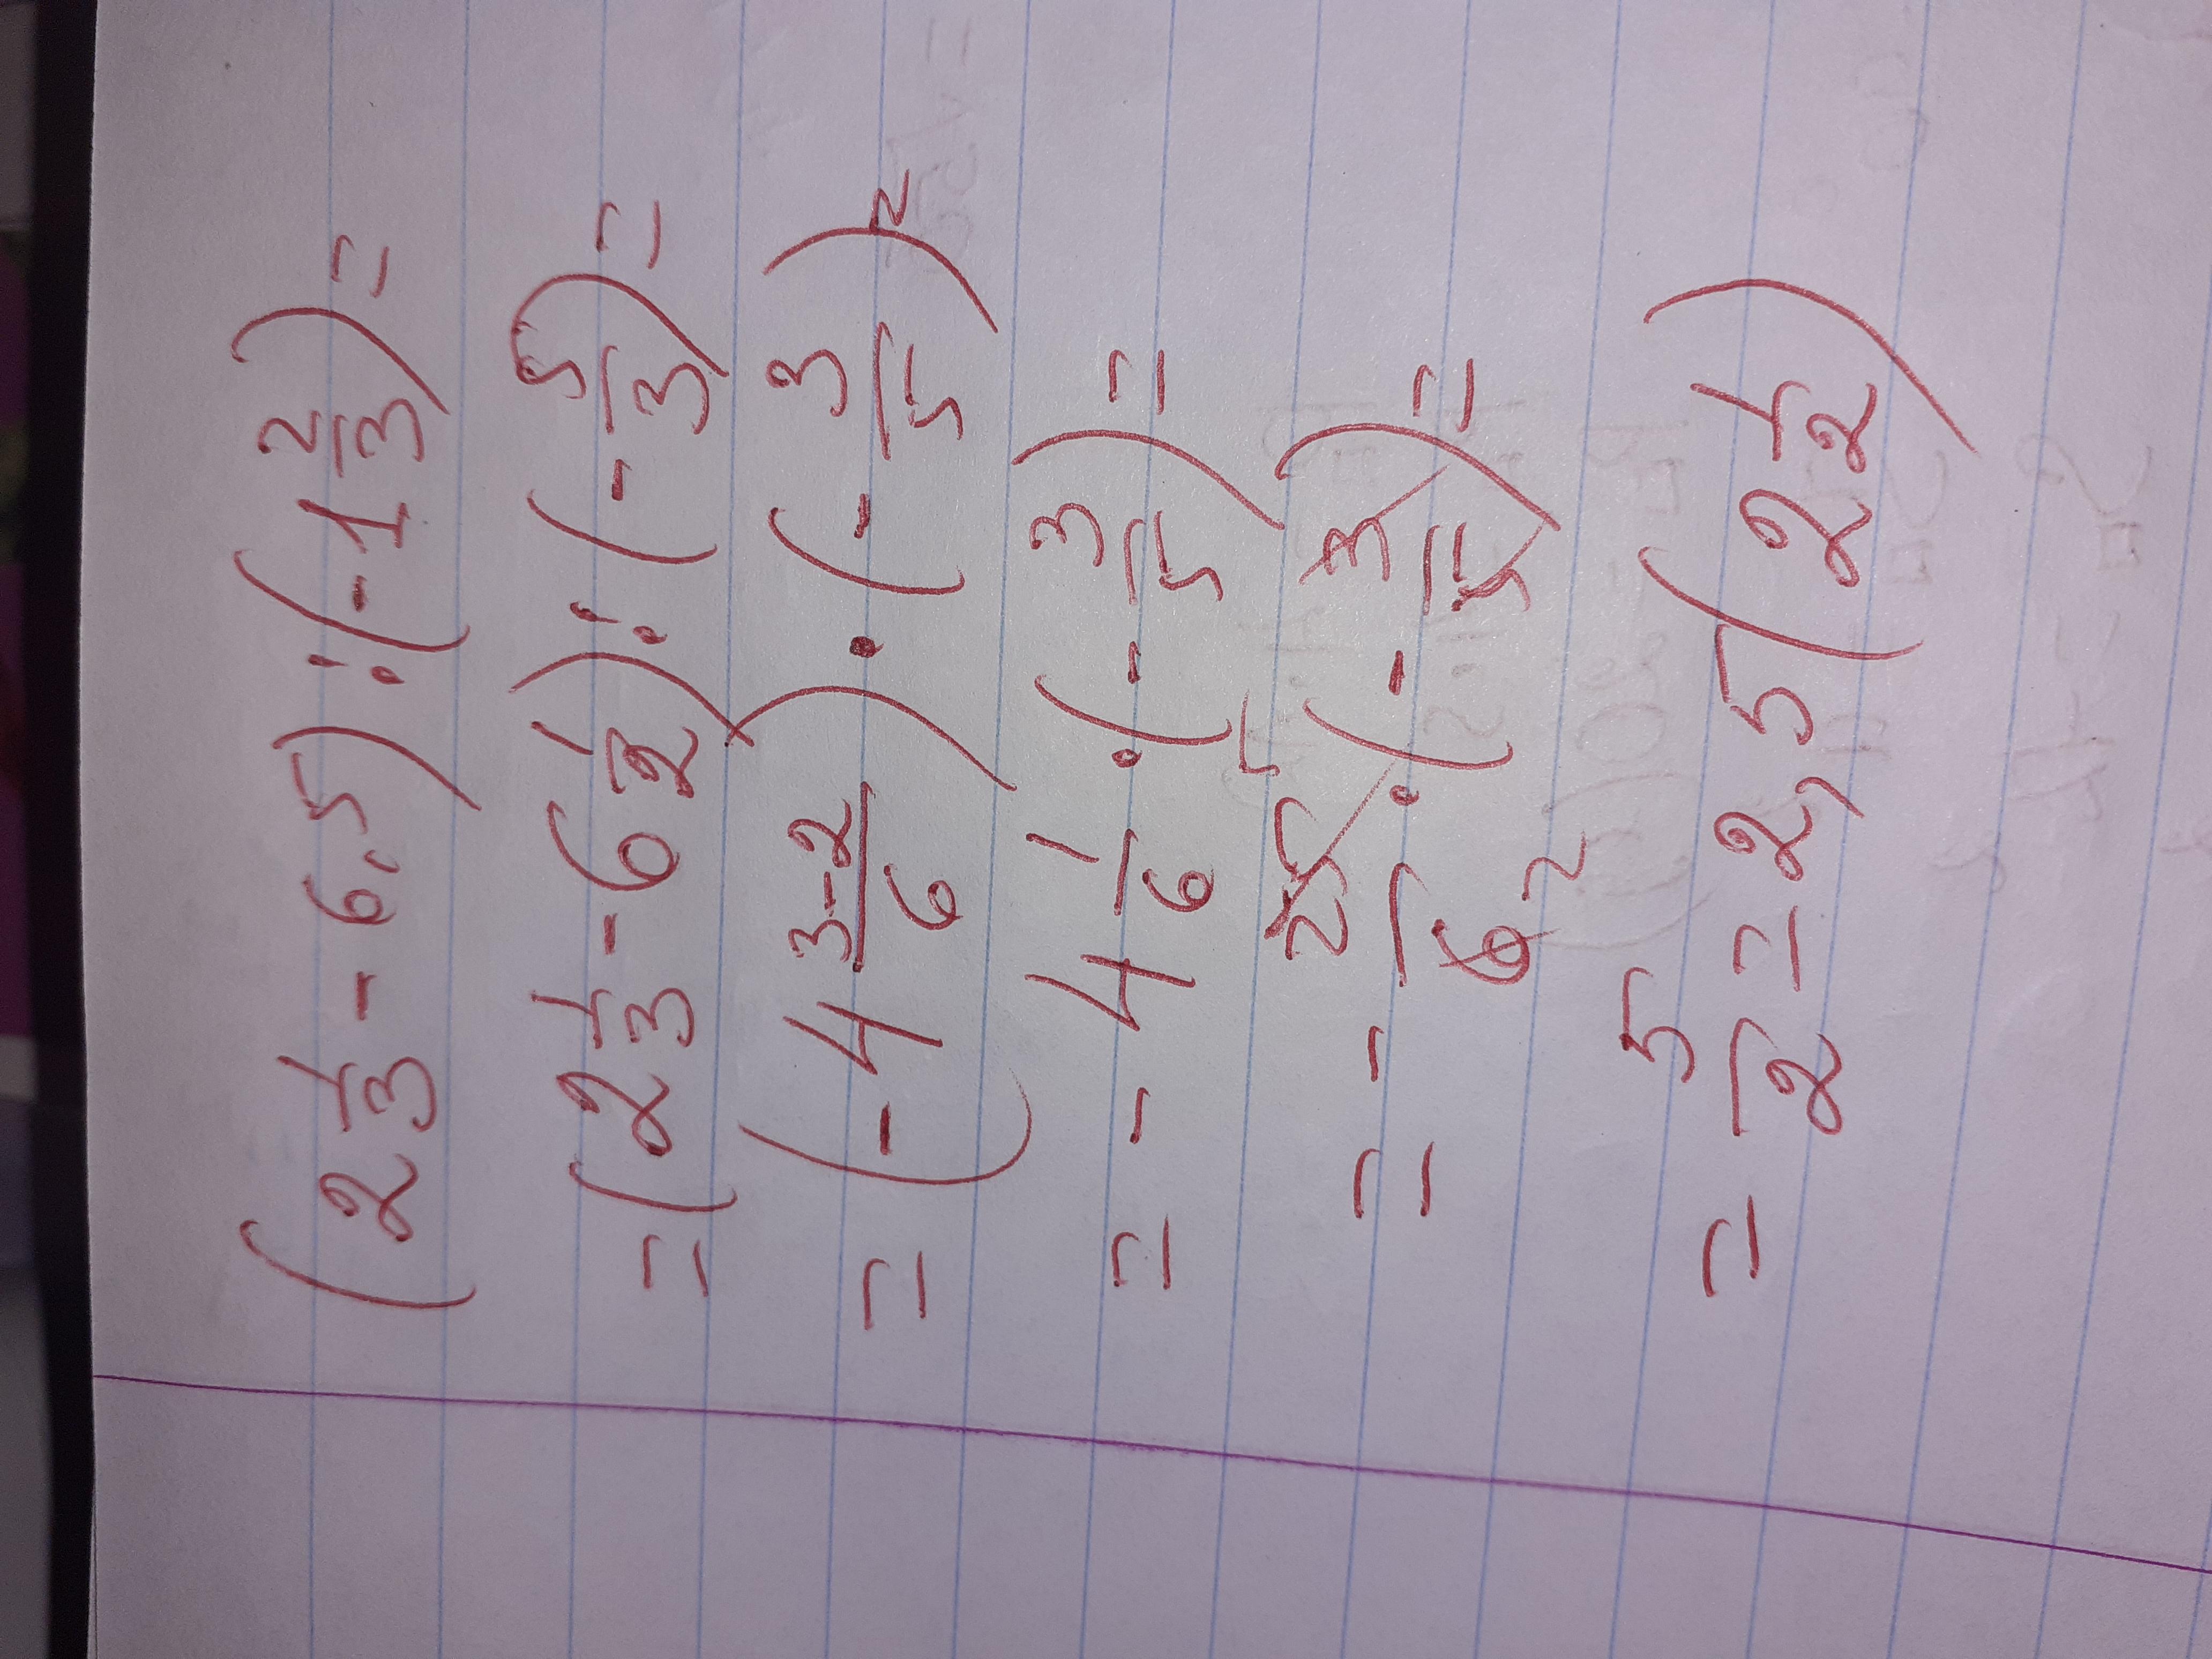 (2 1/3 - 6,5) : (-1 2/3) =
= (2 1/3 - 6 1/2) : (- 5/3) =
= (- 4 3-2/6) · (- 3/5) =
= - 4 1/6 · (- 3/5) =
= - 25/6 · (- 3/5) = 5 2
= 5/2 = 2,5 (2 1/2)